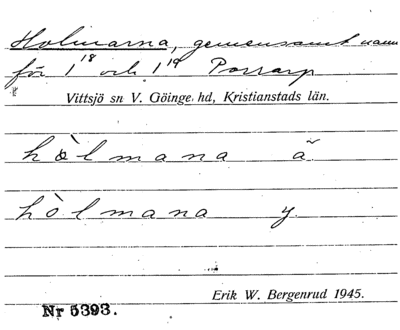 Holmarna, gemensamt namn
för 1¹⁸ och 1¹⁹ Porrarp
Vittsjö sn V. Göinge hd, Kristianstads län.
hòlmana ã
hòlmana y
Erik W. Bergenrud 1945.
Nr 5393.